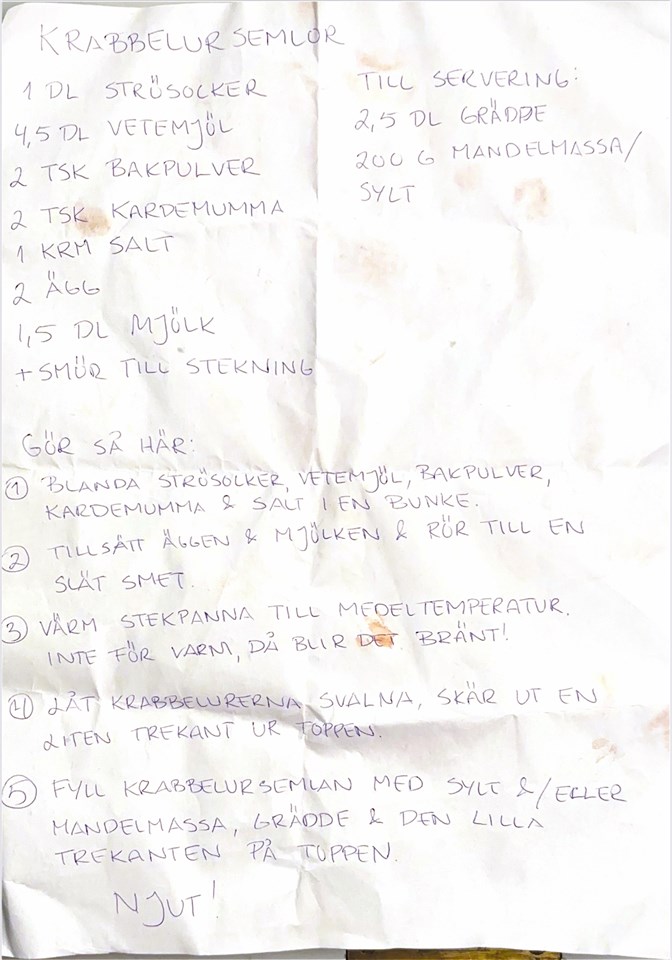 KRABBELURSEMLOR
1 DL STRÖSOCKER
4,5 DL VETEMJÖL
2 TSK BAKPULVER
2 TSK KARDEMUMMA
1 KRM SALT
2 ÄGG
1,5 DL MJÖLK
+ SMÖR TILL STEKNING
TILL SERVERING:
2,5 DL GRÄDDE
200 G MANDELMASSA/
SYLT
GÖR SÅ HÄR:
① BLANDA STRÖSOLKER, VETEMJÖL, BAKPULVER,
KARDEMUMMA & SALT I EN BUNKE.
② TILLSÄTT ÄGGEN & MJÖLKEN & RÖR TILL EN
SLÄT SMET.
③ VÄRM STEKPANNA TILL MEDELTEMPERATUR.
INTE FÖR VARM, DÅ BLIR DET BRÄNT!
④ LÅT KRABBELURERNA SVALNA, SKÄR UT EN
LITEN TREKANT UR TOPPEN.
⑤ FYLL KRABBELURSEMLAN MED SYLT &/ELLER
MANDELMASSA, GRÄDDE & DEN LILLA
TREKANTEN PÅ TOPPEN.
NJUT!